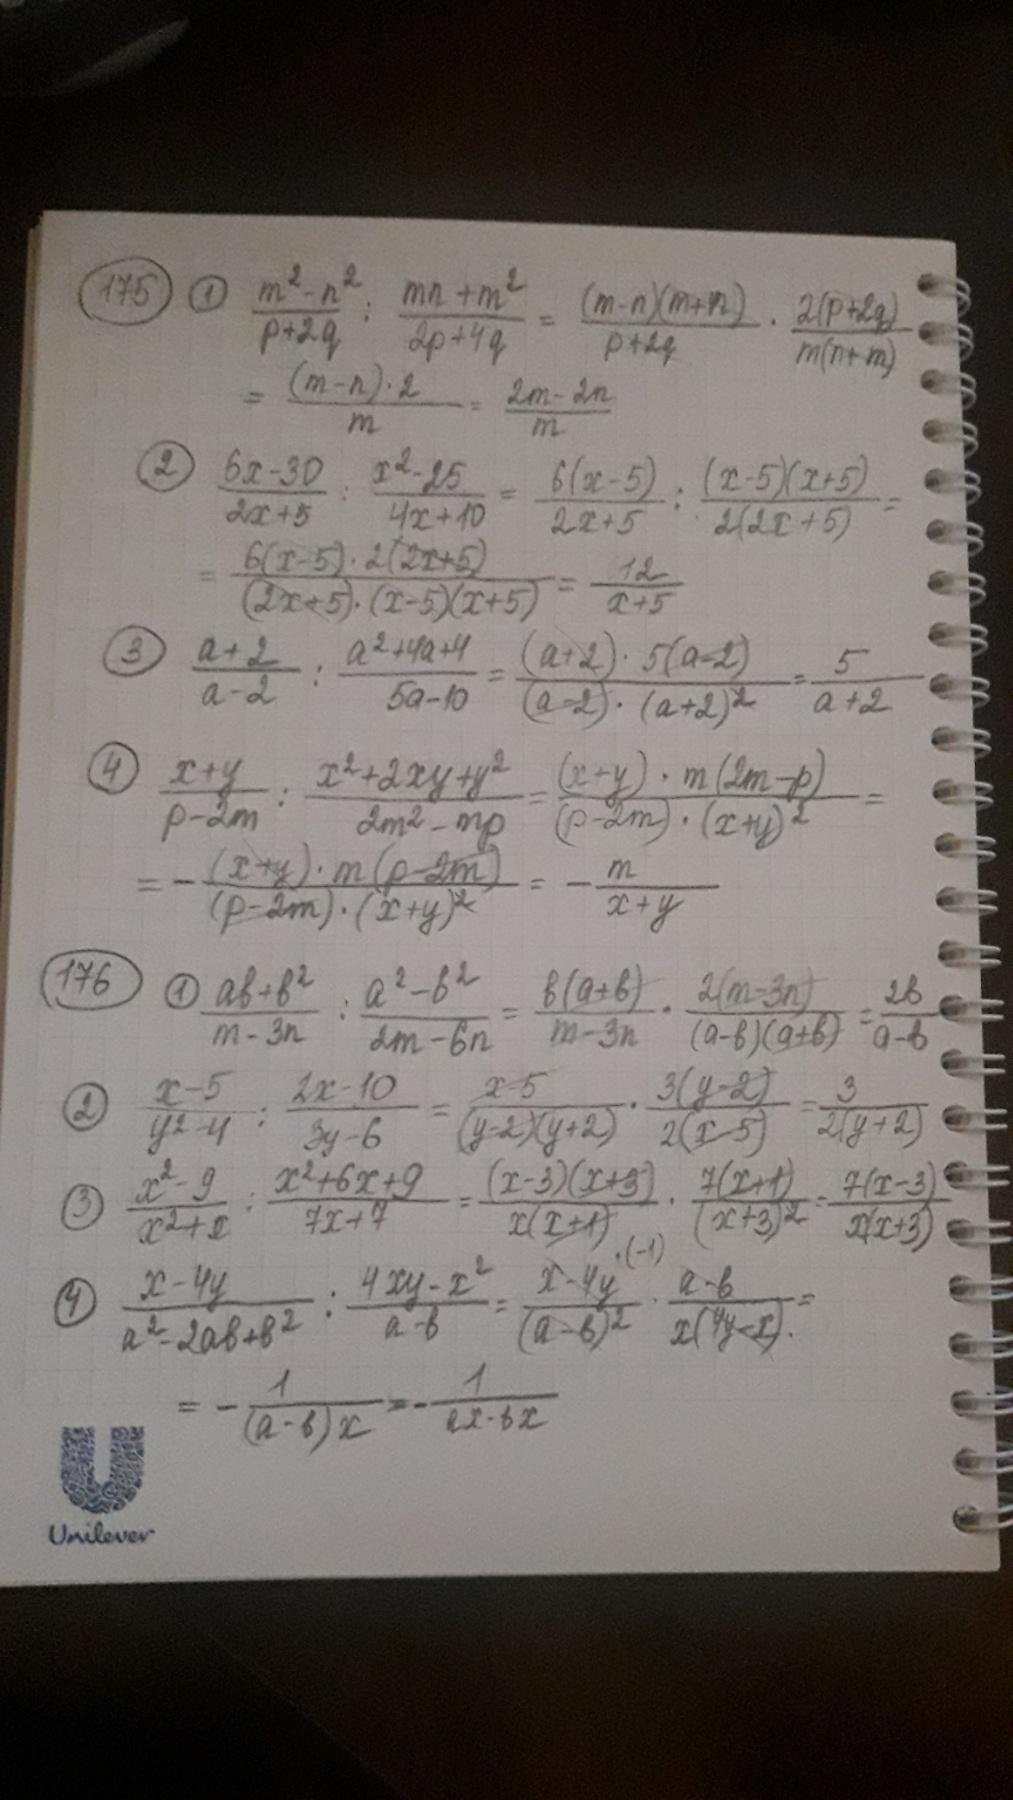 175 1 (m²-n²)/(p+2q) : (mn+m²)/(2p+4q) = ((m-n)(m+n))/(p+2q) · (2(p+2q))/(m(n+m))
= ((m-n)·2)/m = (2m-2n)/m
2 (6x-30)/(2x+5) : (x²-25)/(4x+10) = (6(x-5))/(2x+5) : ((x-5)(x+5))/(2(2x+5)) =
= (6(x-5)·2(2x+5))/((2x+5)·(x-5)(x+5)) = 12/(x+5)
3 (a+2)/(a-2) : (a²+4a+4)/(5a-10) = ((a+2)·5(a-2))/((a-2)·(a+2)²) = 5/(a+2)
4 (x+y)/(p-2m) : (x²+2xy+y²)/(2m²-mp) = ((x+y)·m(2m-p))/((p-2m)·(x+y)²) =
= -((x+y)·m(p-2m))/((p-2m)·(x+y)²) = -m/(x+y)
176 1 (ab+b²)/(m-3n) : (a²-b²)/(2m-6n) = (b(a+b))/(m-3n) · (2(m-3n))/((a-b)(a+b)) = 2b/(a-b)
2 (x-5)/(y²-4) : (2x-10)/(3y-6) = (x-5)/((y-2)(y+2)) · (3(y-2))/(2(x-5)) = 3/(2(y+2))
3 (x²-9)/(x²+x) : (x²+6x+9)/(7x+7) = ((x-3)(x+3))/(x(x+1)) · (7(x+1))/((x+3)²) = (7(x-3))/(x(x+3))
4 (x-4y)/(a²-2ab+b²) : (4xy-x²)/(a-b) = (x-4y ·(-1))/((a-b)²) · (a-b)/(x(4y-x)) =
= -1/((a-b)x) = -1/(ax-bx)
Unilever